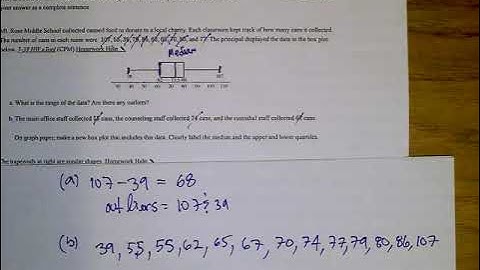 your answer as a complete sentence
Rose Middle School collected canned food to donate to a local charity. Each classroom kept track of how many cans it collected.
The number of cans in each room were 107, and 77. The principal displayed the data in the box plot
below. Homework Help
Median
a. What is the range of the data? Are there any outliers?
b. The main office staff collected cans, the counseling staff collected 74 cans, and the custodial staff collected cans.
On graph paper, make a new box plot that includes this data. Clearly label the median and the upper and lower quartiles.
The trapezoids at right are similar shapes. Homework Help
(a) 107 - 39 = 68
outliers = 107 & 39
(b) 39, 55, 55, 62, 65, 67, 70, 74, 77, 79, 80, 86, 107